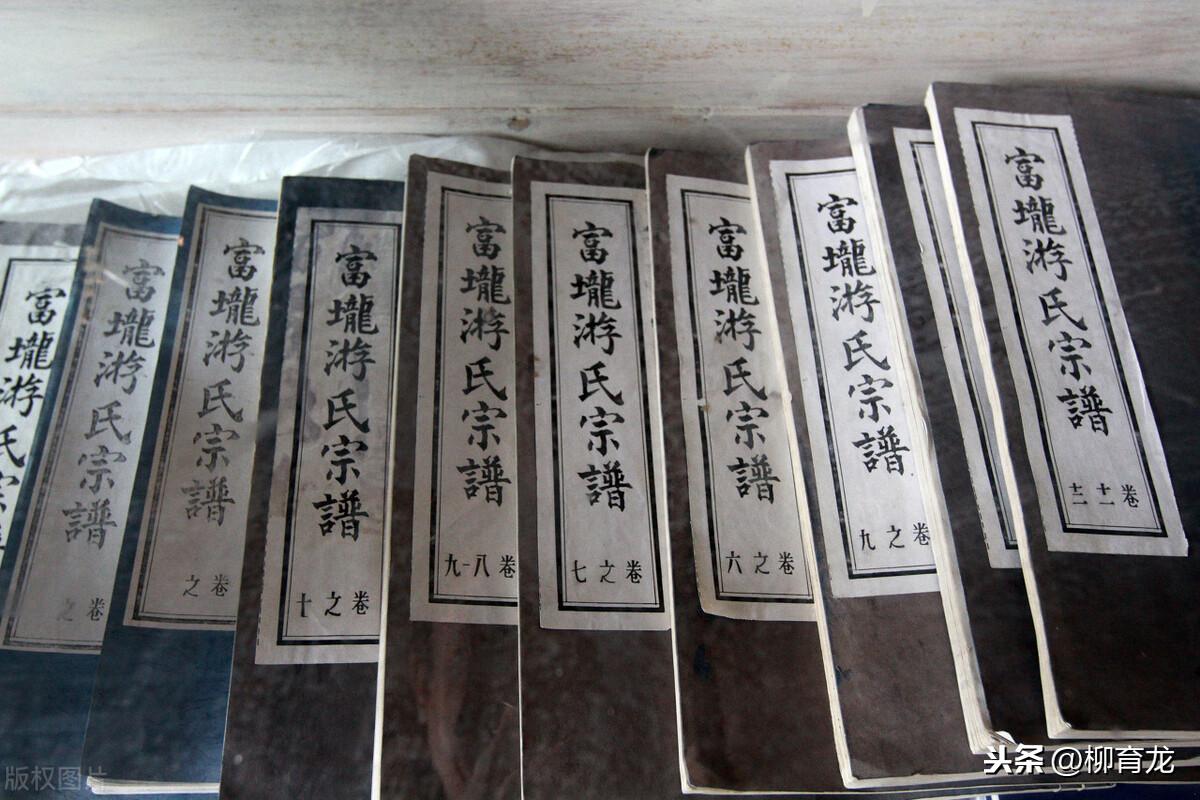 富壠游氏宗譜
卷十一十二
富壠游氏宗譜
卷之九
富壠游氏宗譜
卷之六
富壠游氏宗譜
卷之七
富壠游氏宗譜
卷八-九
富壠游氏宗譜
卷之十
富壠游氏宗譜
卷之
富壠游氏宗譜
卷之
富壠游氏宗
版权图片
头条 @柳育龙